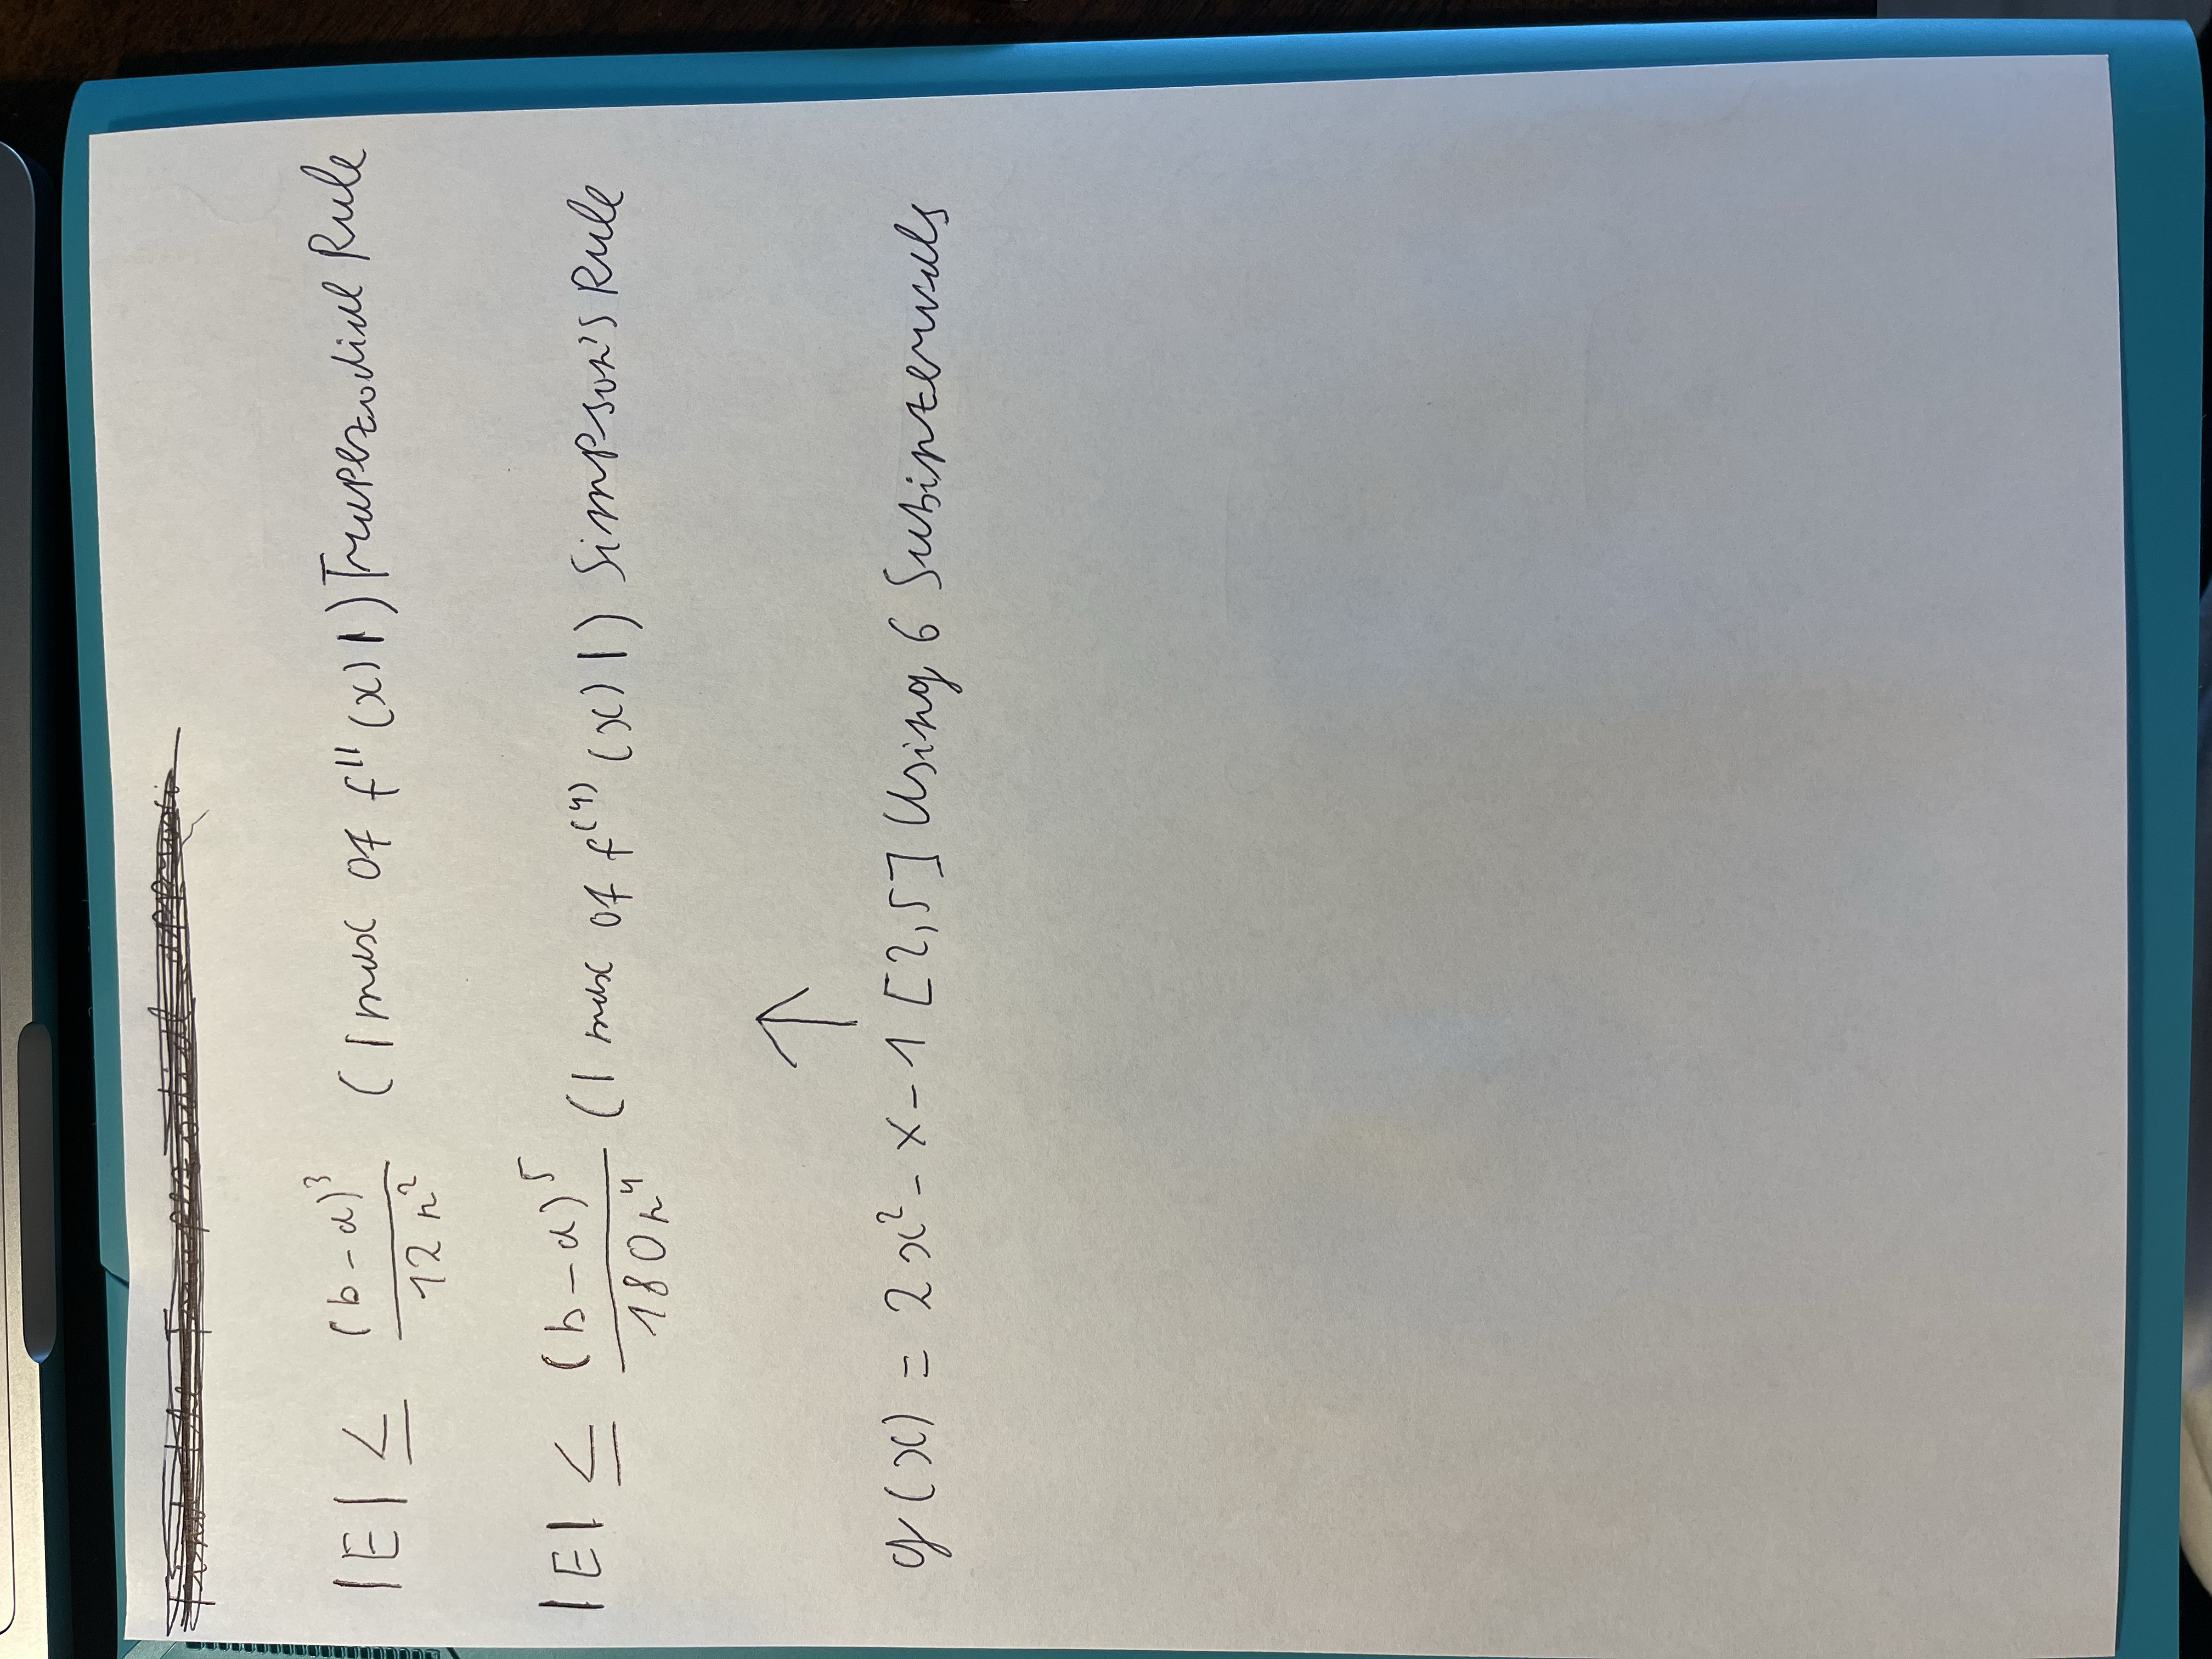 |E| ≤ (b-a)³/12n² (|max of f''(x)|) Trapezodial Rule
|E| ≤ (b-a)⁵/180n⁴ (|max of f⁽⁴⁾(x)|) Simpson's Rule
↑
g(x) = 2x² - x - 1 [2,5] Using 6 Subintervals